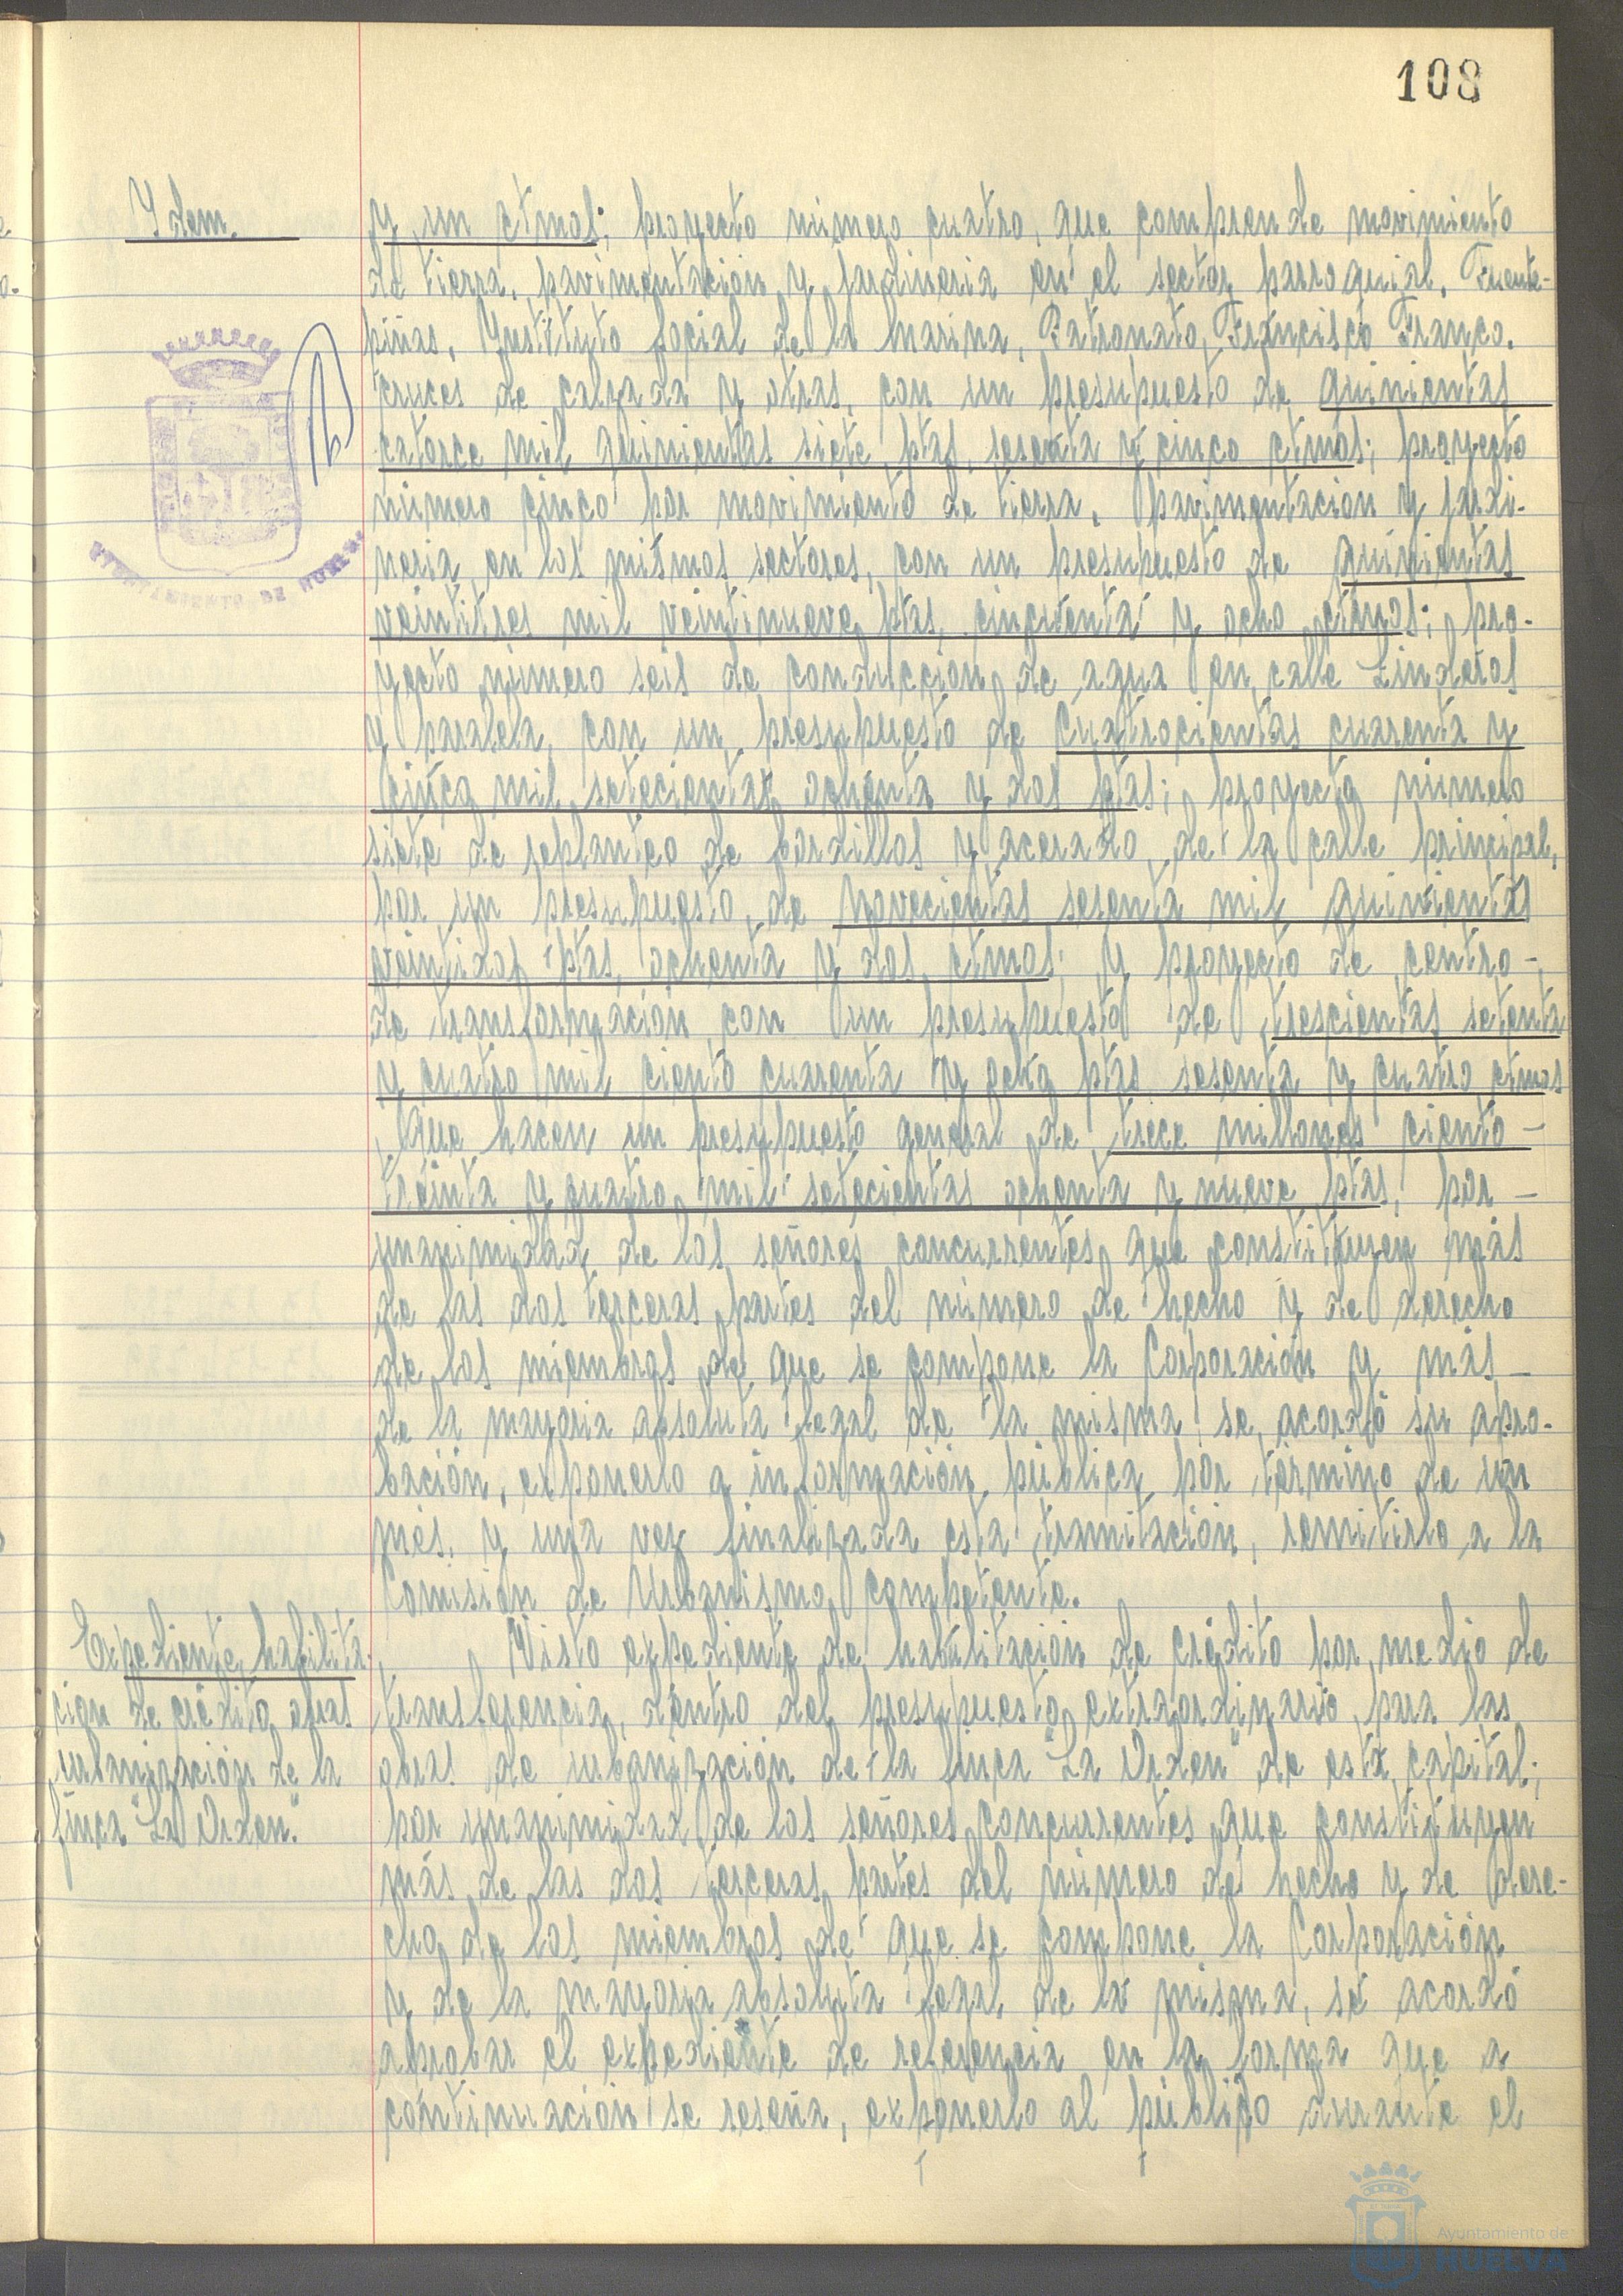 108
Idem.
y un ctmos; proyecto número cuatro, que comprende movimiento
de tierra, pavimentación y jardineria en el sector parroquial, Fuente-
piñas, Instituto Social de la Marina, Patronato, Francisco Franco,
cruces de calzada y otras, con un presupuesto de quinientas
catorce mil quinientas siete ptas, sesenta y cinco ctmos; proyecto
número cinco por movimiento de tierra, pavimentación y jardi-
neria, en los mismos sectores, con un presupuesto de quinientas
veintitres mil veintinueve ptas, cincuenta y ocho ctmos; pro-
yecto número seis de conducción de agua en calle Linderos
y paralela, con un presupuesto de cuatrocientas cuarenta y
cinco mil setecientas ochenta y dos ptas; proyecto número
siete de replanteo de bordillos y acerado, de la calle principal,
por un presupuesto, de novecientas sesenta mil quinientas
veintidos ptas, ochenta y dos, ctmos; y proyecto de centro-
de transformación con un presupuesto de trescientas setenta
y cuatro mil ciento cuarenta y ocho ptas sesenta y cuatro ctmos
Que hacen un presupuesto general de trece millones ciento-
treinta y cuatro mil setecientas ochenta y nueve ptas, por-
unanimidad de los señores concurrentes que constituyen más
de las dos terceras partes del número de hecho y de derecho
de los miembros de que se compone la Corporación y más-
de la mayoria absoluta legal de la misma, se acordó su apro-
bación, exponerlo a información pública por término de un
més, y una vez finalizada esta tramitación, remitirlo a la
Comisión de Urbanismo competente.
Expediente habilita-
ción de crédito obras
urbanización de la
finca "La Orden."
Visto expediente de habilitación de crédito por medio de
transferencia, dentro del presupuesto extraordinario para las
obras de urbanización de la finca "La Orden" de esta capital;
por unanimidad de los señores concurrentes que constituyen
más de las dos terceras partes del número de hecho y de dere-
cho de los miembros de que se compone la Corporación
y de la mayoria absoluta legal de la misma, se acordó
aprobar el expediente de referencia en la forma que a
continuación se reseña, exponerlo al público durante el
AYUNTAMIENTO DE HUELVA
Ayuntamiento de
HUELVA